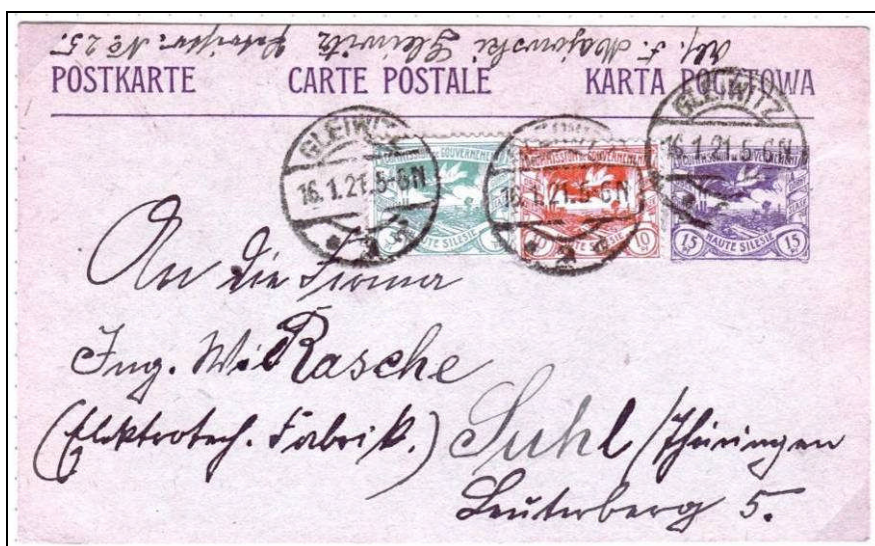 Abs. F. Majowski Gleiwitz No 25.
POSTKARTE CARTE POSTALE KARTA POCZTOWA
GLEIWITZ
16.1.21.5-6N
GLEIWITZ
16.1.21.5-6N
GLEIWITZ
16.1.21.5-6N
COMMISSION DE GOUVERNEMENT
HAUTE SILESIE
10 10
HAUTE SILESIE
15 15
HAUTE SILESIE
An die Firma
Ing. W. Rasche
(Elektrotech. Fabrik.) Suhl / Thüringen
Leuterberg 5.